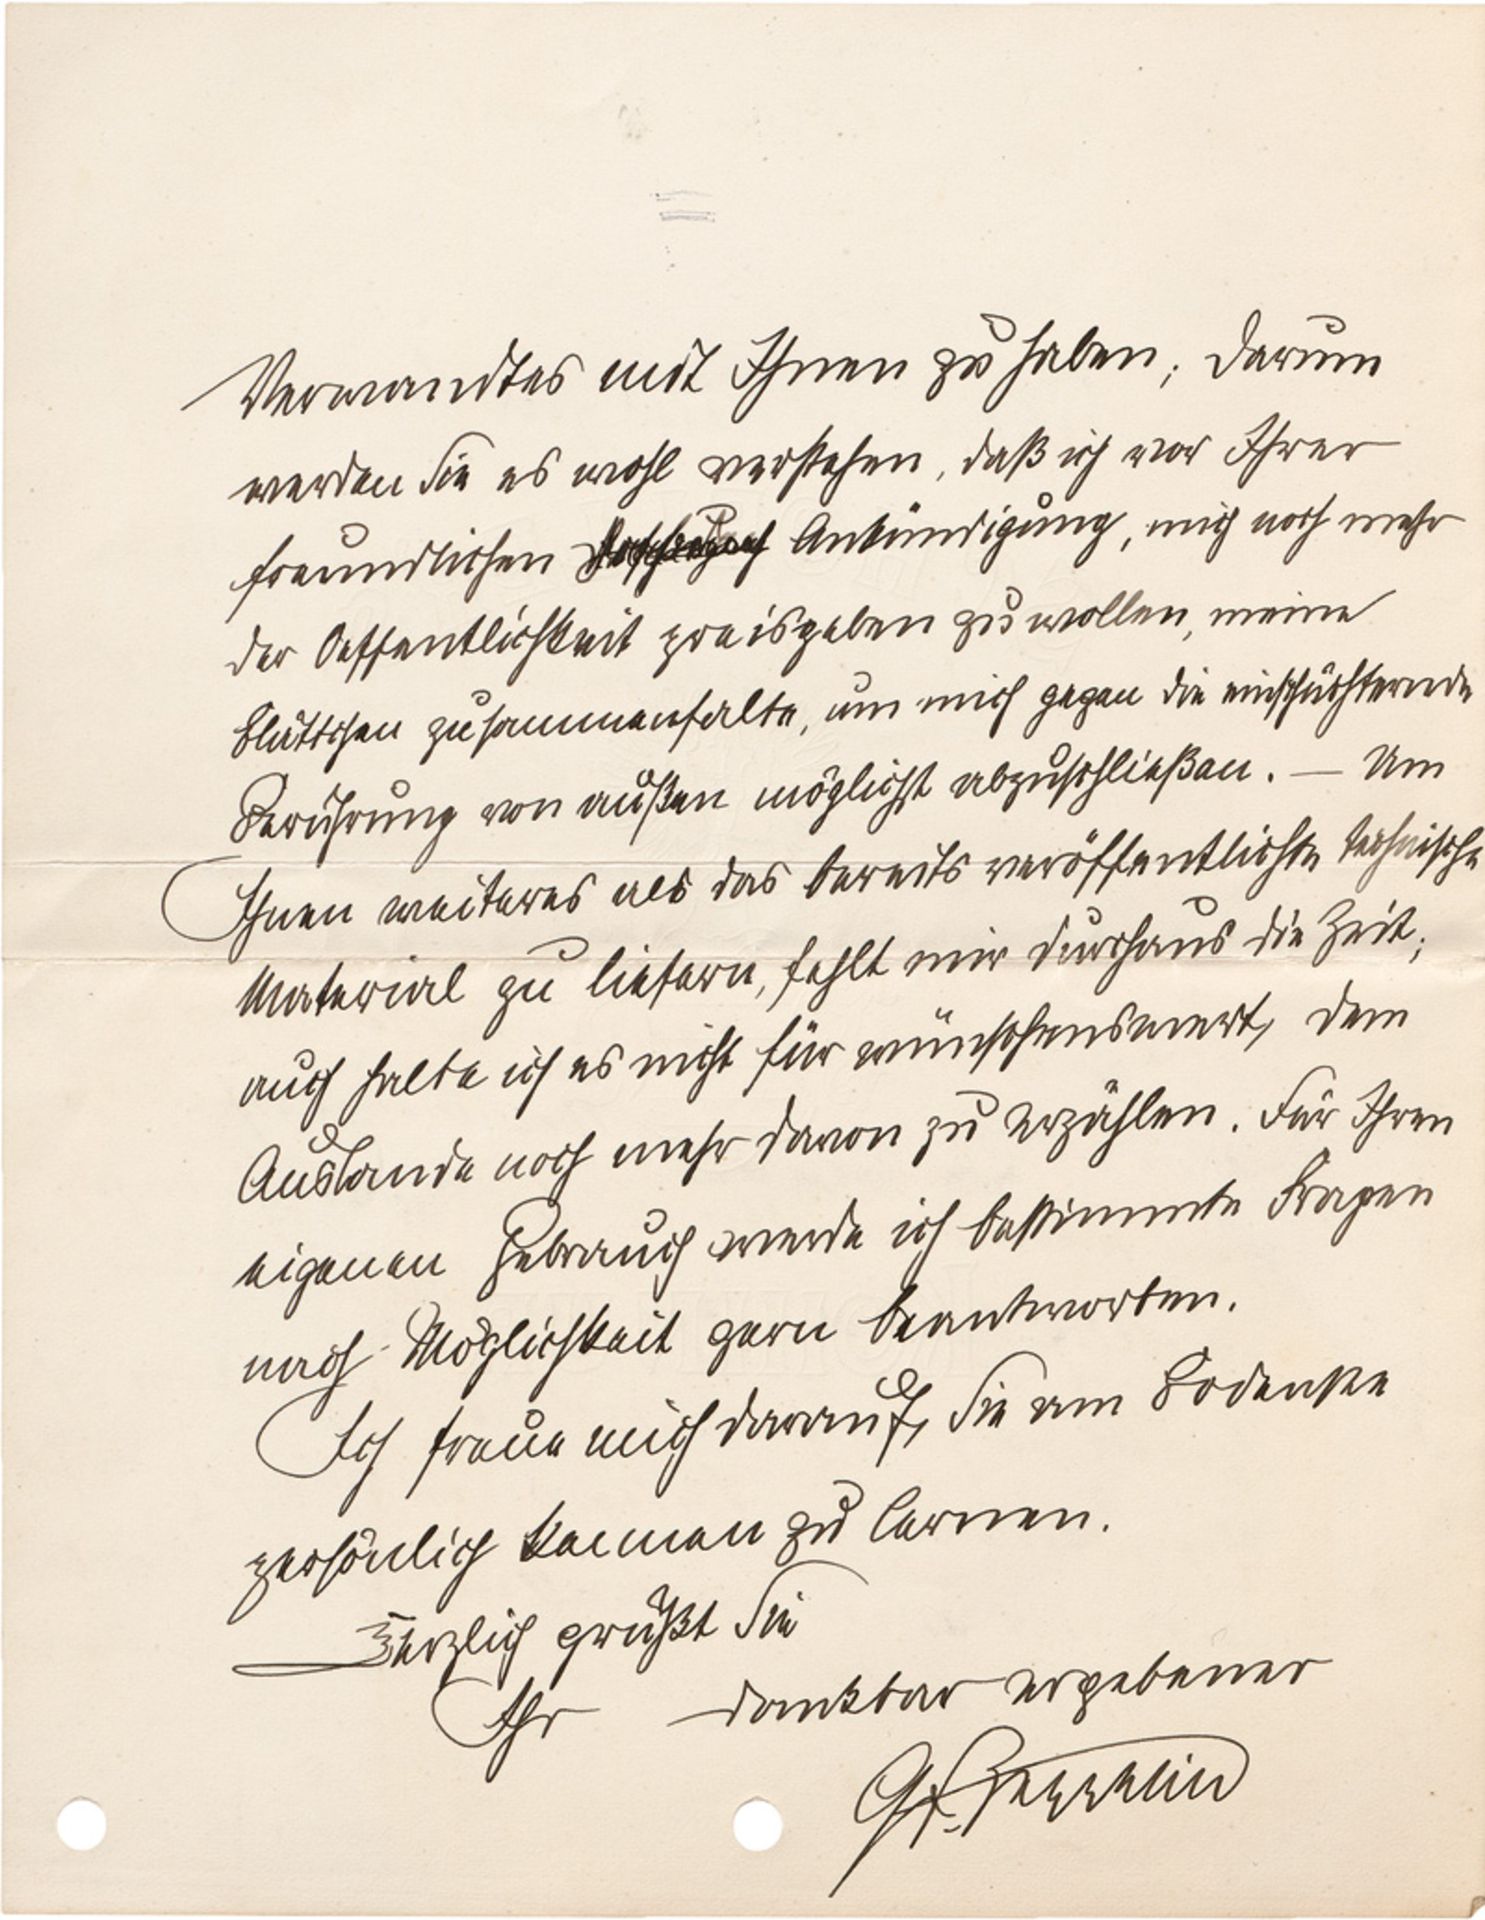 Verwandtes mit Ihnen zu haben; darum
werden Sie es wohl verstehen, daß ich vor Ihrer
freundlichen Ankündigung, mich noch mehr
der Oeffentlichkeit preisgeben zu wollen, meine
Blättchen zusammenfalte, um mich gegen die einschüchternde
Berührung von außen möglichst abzuschließen. — Um
Ihnen weiteres als das bereits veröffentlichte technische
Material zu liefern, fehlt mir durchaus die Zeit;
auch halte ich es nicht für wünschenswert, dem
Auslande noch mehr davon zu erzählen. Für Ihren
eigenen Gebrauch werde ich bestimmte Fragen
nach Möglichkeit gern beantworten.
Ich freue mich darauf, Sie am Bodensee
persönlich kennen zu lernen.
Herzlich grüßt Sie
Ihr dankbar ergebener
Gf. Zeppelin